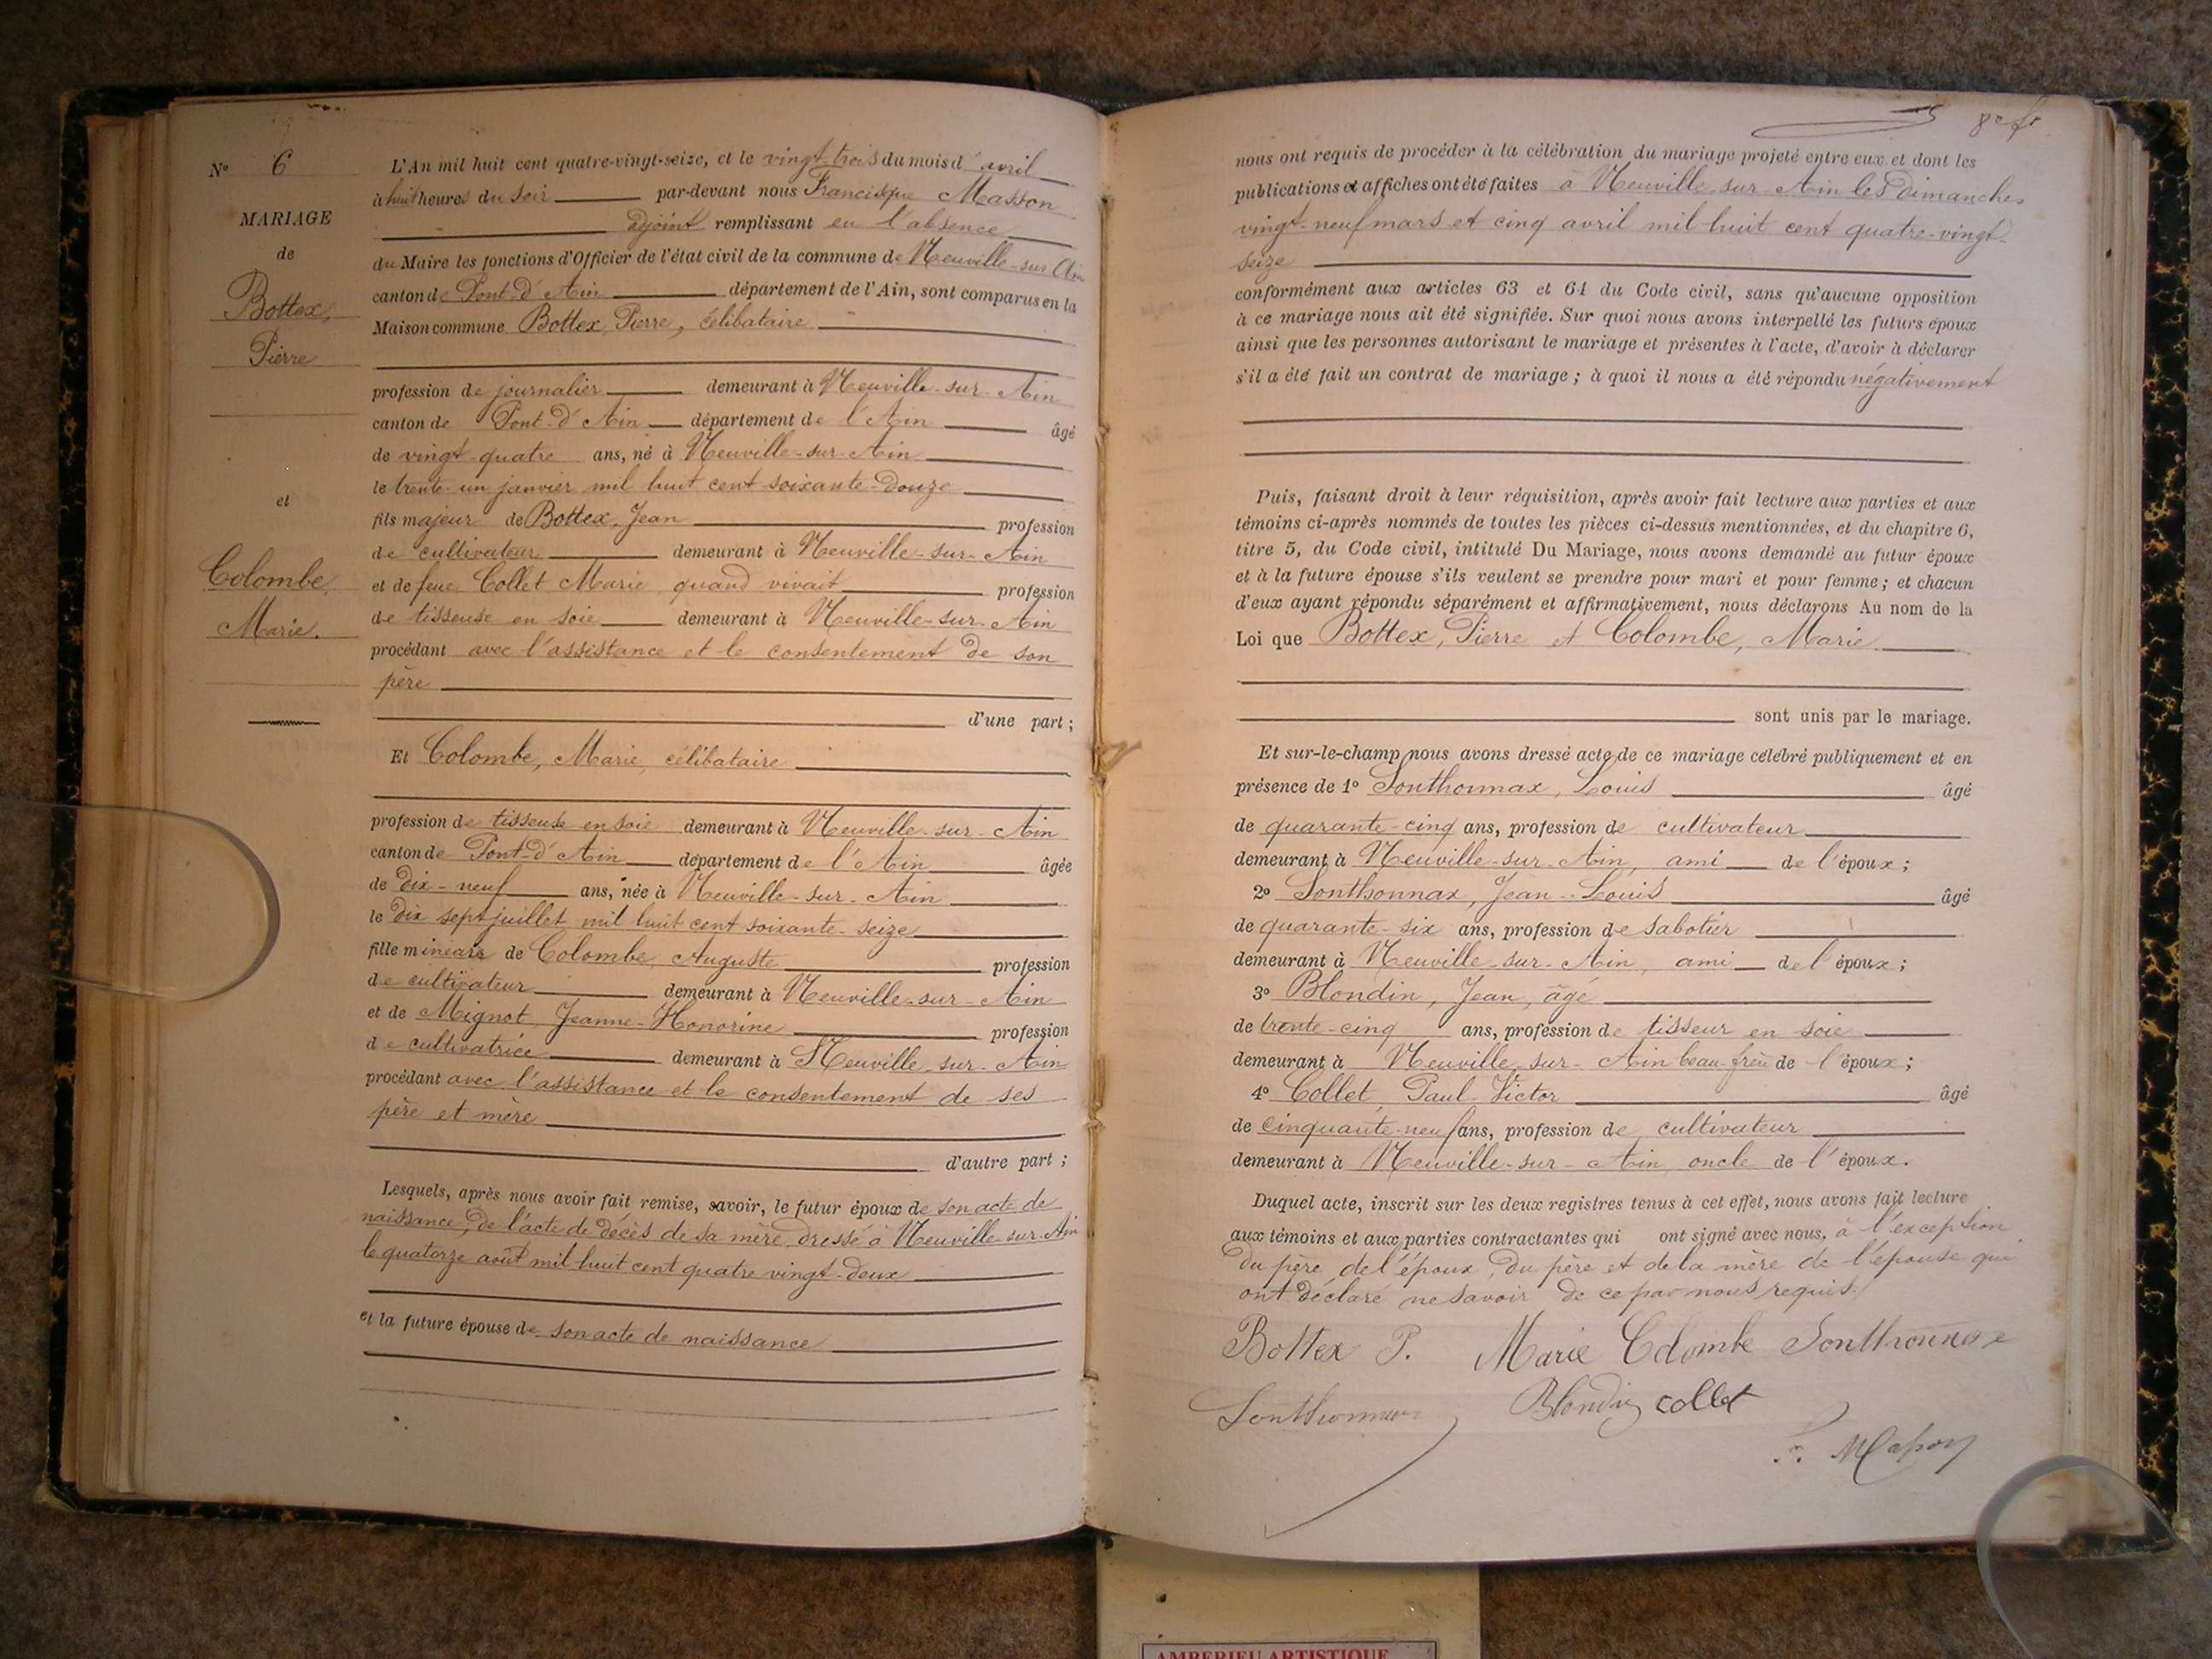 N° 6
MARIAGE
de
Bottex,
Pierre
et
Colombe,
Marie.
L'An mil huit cent quatre-vingt-seize, et le vingt-trois du mois d'avril
à huit heures du soir par-devant nous Francisque Masson
adjoint remplissant en l'absence
du Maire les fonctions d'Officier de l'état civil de la commune de Neuville-sur-Ain
canton de Pont-d'Ain département de l'Ain, sont comparus en la
Maison commune Bottex, Pierre, célibataire
profession de journalier demeurant à Neuville-sur-Ain
canton de Pont-d'Ain département de l'Ain âgé
de vingt-quatre ans, né à Neuville-sur-Ain
le trente-un janvier mil huit cent soixante-douze
fils majeur de Bottex, Jean profession
de cultivateur demeurant à Neuville-sur-Ain
et de feue Collet Marie, quand vivait profession
de tisseuse en soie demeurant à Neuville-sur-Ain
procédant avec l'assistance et le consentement de son
père
d'une part ;
Et Colombe, Marie, célibataire
profession de tisseuse en soie demeurant à Neuville-sur-Ain
canton de Pont-d'Ain département de l'Ain âgée
de dix-neuf ans, née à Neuville-sur-Ain
le dix sept juillet mil huit cent soixante-seize
fille mineure de Colombe, Auguste profession
de cultivateur demeurant à Neuville-sur-Ain
et de Mignot, Jeanne-Honorine profession
de cultivatrice demeurant à Neuville-sur-Ain
procédant avec l'assistance et le consentement de ses
père et mère
d'autre part ;
Lesquels, après nous avoir fait remise, savoir, le futur époux de son acte de
naissance, de l'acte de décès de sa mère dressé à Neuville-sur-Ain
le quatorze août mil huit cent quatre vingt-deux
et la future épouse de son acte de naissance
nous ont requis de procéder à la célébration du mariage projeté entre eux et dont les
publications et affiches ont été faites à Neuville-sur-Ain les dimanches
vingt-neuf mars et cinq avril mil huit cent quatre-vingt-
seize
conformément aux articles 63 et 64 du Code civil, sans qu'aucune opposition
à ce mariage nous ait été signifiée. Sur quoi nous avons interpellé les futurs époux
ainsi que les personnes autorisant le mariage et présentes à l'acte, d'avoir à déclarer
s'il a été fait un contrat de mariage ; à quoi il nous a été répondu négativement
Puis, faisant droit à leur réquisition, après avoir fait lecture aux parties et aux
témoins ci-après nommés de toutes les pièces ci-dessus mentionnées, et du chapitre 6,
titre 5, du Code civil, intitulé Du Mariage, nous avons demandé au futur époux
et à la future épouse s'ils veulent se prendre pour mari et pour femme ; et chacun
d'eux ayant répondu séparément et affirmativement, nous déclarons Au nom de la
Loi que Bottex, Pierre et Colombe, Marie
sont unis par le mariage.
Et sur-le-champ nous avons dressé acte de ce mariage célébré publiquement et en
présence de 1° Sonthonnax, Louis âgé
de quarante-cinq ans, profession de cultivateur
demeurant à Neuville-sur-Ain, ami de l'époux ;
2° Sonthonnax, Jean-Louis âgé
de quarante-six ans, profession de sabotier
demeurant à Neuville-sur-Ain, ami de l'époux ;
3° Blondin, Jean, âgé
de trente-cinq ans, profession de tisseur en soie
demeurant à Neuville-sur-Ain beau-frère de l'époux ;
4° Collet, Paul-Victor âgé
de cinquante-neuf ans, profession de cultivateur
demeurant à Neuville-sur-Ain, oncle de l'époux.
Duquel acte, inscrit sur les deux registres tenus à cet effet, nous avons fait lecture
aux témoins et aux parties contractantes qui ont signé avec nous, à l'exception
du père de l'époux, du père et de la mère de l'épouse qui
ont déclaré ne savoir de ce par nous requis.
Bottex P. Marie Colombe Sonthonnax
Sonthonnax Blondin collet
F. Masson
AMBERIEU ARTISTIQUE